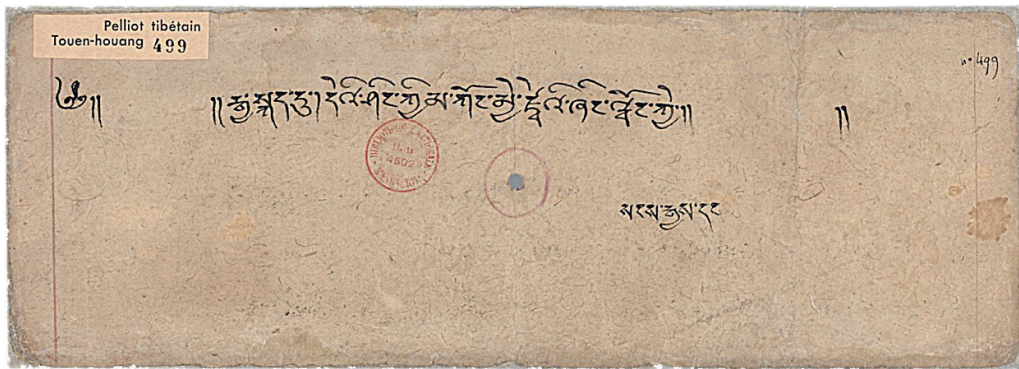 Pelliot tibétain
Touen-houang 499
nº 499
༄༅།། །།རྒྱ་སྐད་དུ། དེའི་ཤིང་ཀྱིམ་ཀོང་མྱེ་ ཞིང་ ཀྱེ།། །།
སངས་རྒྱས་དང